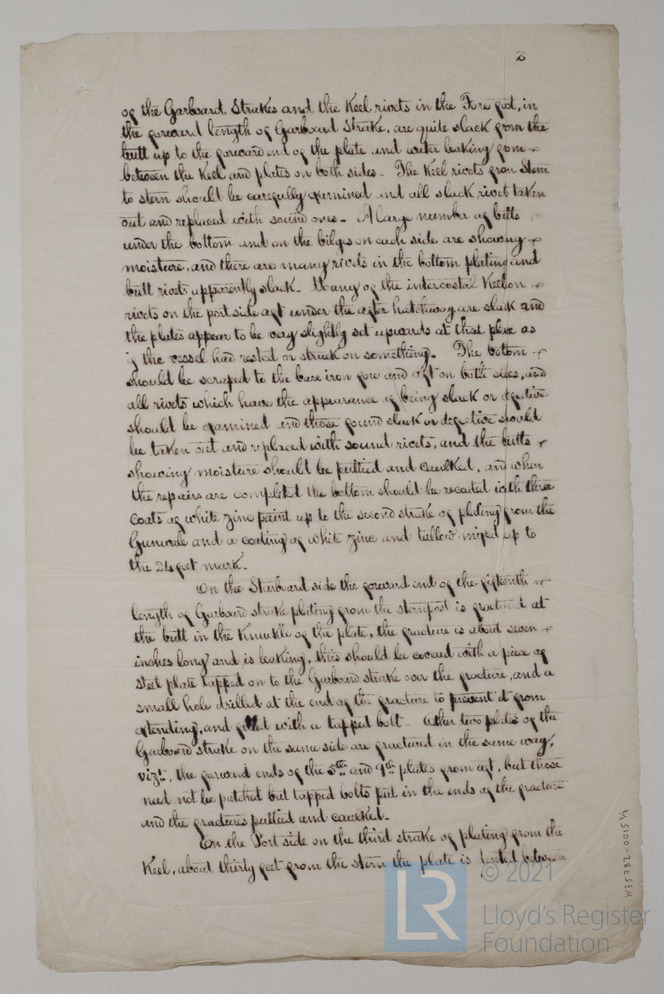 2
of the Garboard Strakes and the Keel rivets in the Fore foot, in
the forward length of Garboard Strake, are quite slack from the
butt up to the forward end of the plate and water leaking from
between the Keel and plates on both sides - The Keel rivets from Stem
to stern should be carefully examined and all slack rivets taken
out and replaced with sound ones - A large number of butts
under the bottom and on the bilges on each side are showing
moisture, and there are many rivets in the bottom plating and
butt rivets apparently slack. Many of the intercostal Keelson
rivets on the port side aft under the after hatchway are slack and
the plates appear to be very slightly set upwards at that place as
if the vessel had rested or struck on something. The bottom
should be scraped to the bare iron fore and aft on both sides, and
all rivets which have the appearance of being slack or defective
should be examined and those found slack or defective should
be taken out and replaced with sound rivets, and the butts
showing moisture should be puttied and caulked, and when
the repairs are completed the bottom should be recoated with three
coats of white zinc paint up to the second strake of plating from the
Gunwale and a coating of white zinc and tallow mixed up to
the 24 feet mark.
On the Starboard side the forward end of the fifteenth
length of Garboard strake plating from the sternpost is fractured at
the butt in the Knuckle of the plate, the fracture is about seven
inches long and is leaking, this should be covered with a piece of
steel plate tapped on to the Garboard strake over the fracture, and a
small hole drilled at the end of the fracture to prevent it from
extending, and filled with a tapped bolt - Other two plates of the
Garboard strake on the same side are fractured in the same way,
vizt, the forward ends of the 5th and 9th plates from aft, but those
need not be patched but tapped bolts put in the ends of the fracture
and the fractures puttied and caulked.
On the Port side on the third strake of plating from the
Keel, about thirty feet from the stern the plate is between
© 2021
Lloyd's Register
Foundation
LR